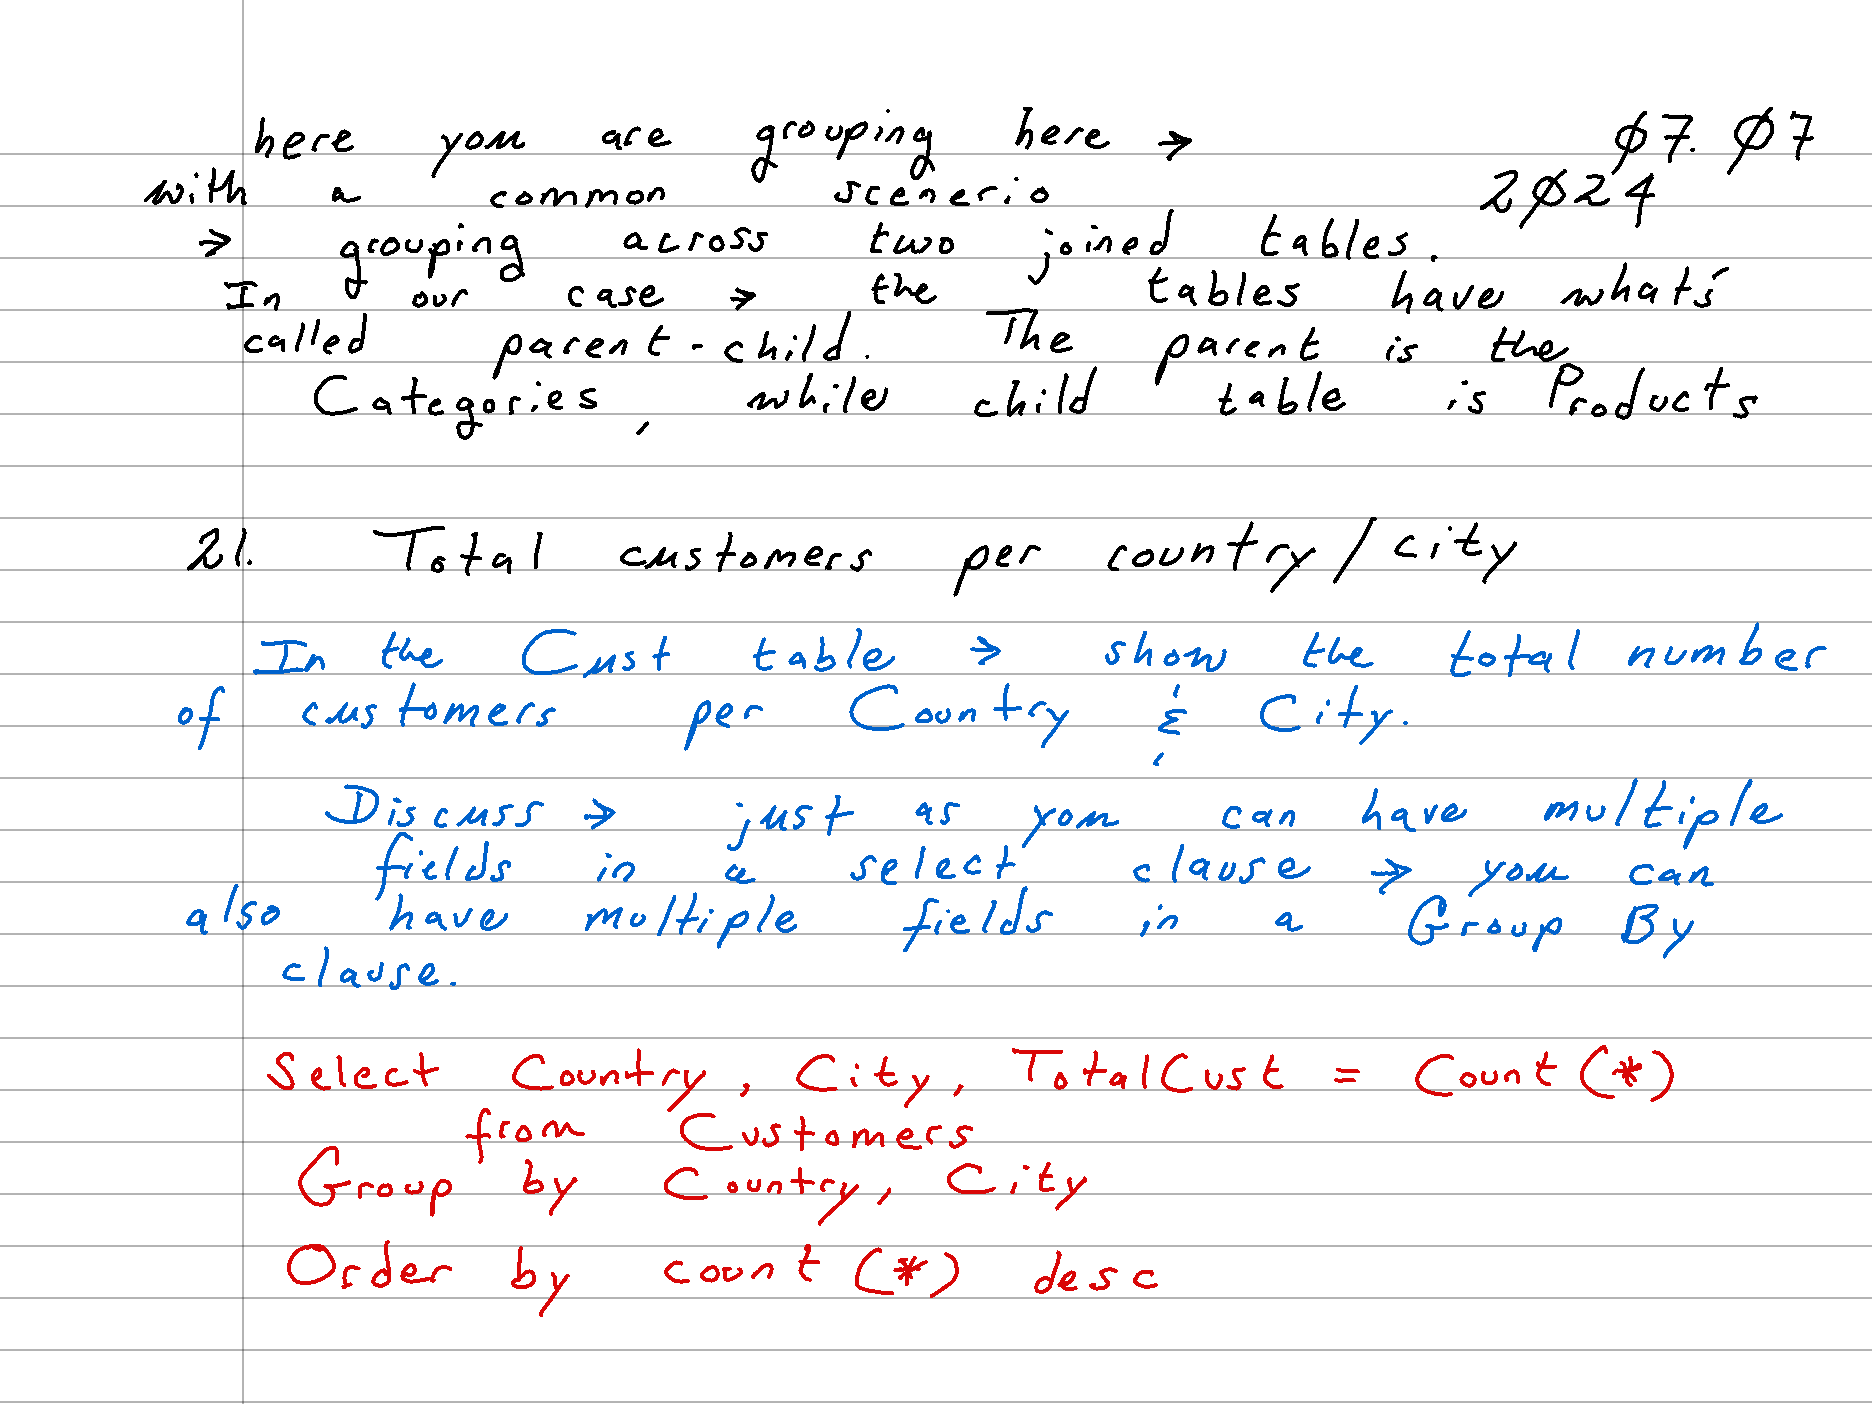 here you are grouping here → Ø7. Ø7
with a common scenerio 2Ø24
→ grouping across two joined tables.
In our case → the tables have what's
called parent-child. The parent is the
Categories, while child table is Products
21. Total customers per country/city
In the Cust table → show the total number
of customers per Country & City.
Discuss → just as you can have multiple
fields in a select clause → you can
also have multiple fields in a Group By
clause.
Select Country, City, TotalCust = Count(*)
from Customers
Group by Country, City
Order by count(*) desc